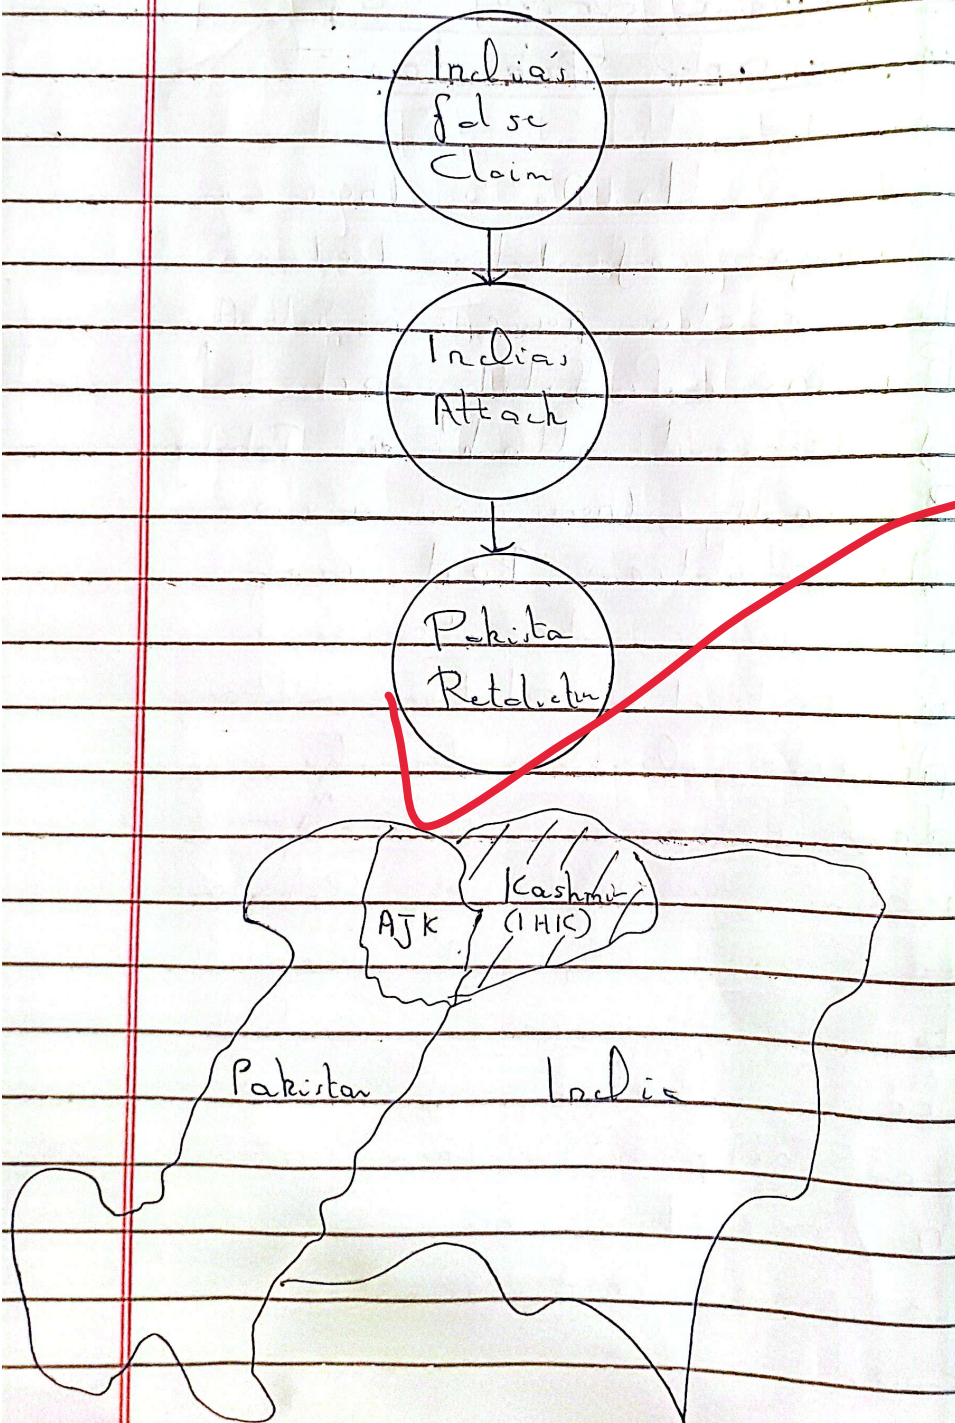 India's
false
Claim
Indias
Attack
Pakista
Retaliation
AJK
Kashmir
(IHK)
Pakistan
India